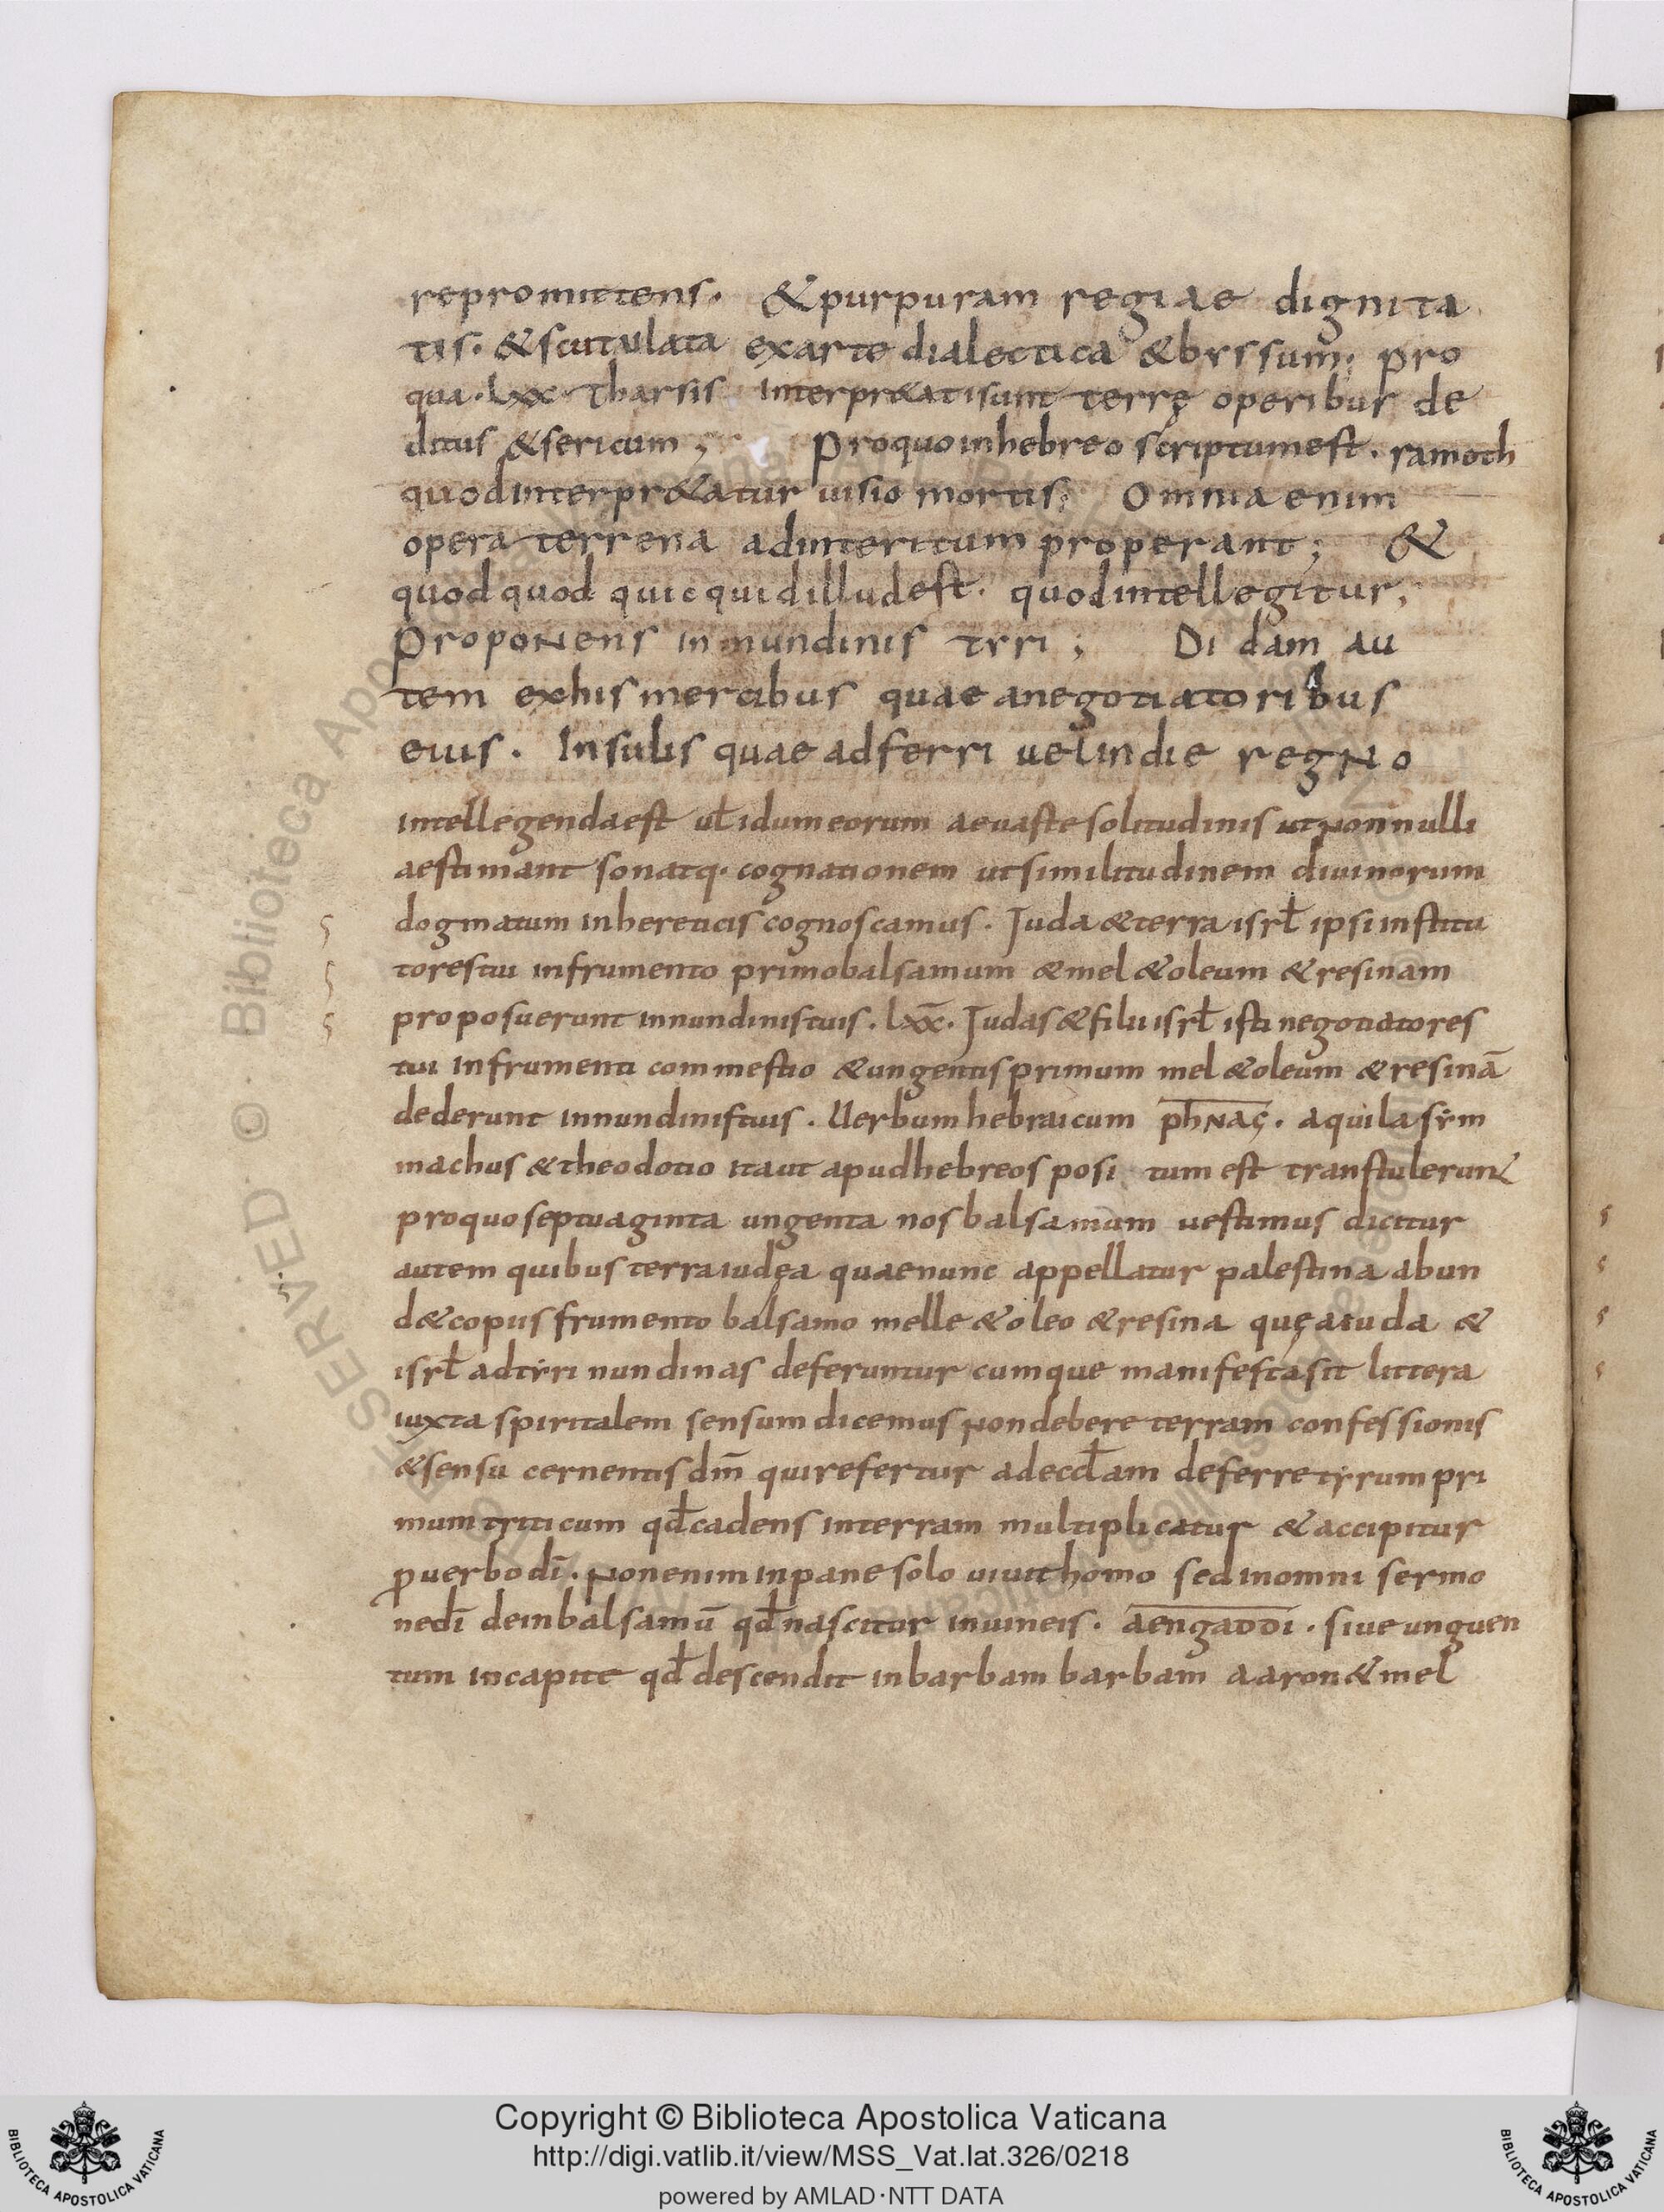 repromittens. & purpuram regiae dignita
tis. & scutulata ex arte dialectica & byssum; pro
qua. lxx. tharsis interpr&ati sunt terrę operibus de
ditus & sericum; Pro quo in hebreo scriptum est. ramoth
quod interpr&atur uisio mortis; Omnia enim
opera terrena ad interitum properant; &
quod quod quicquid illud est. quod intellegitur,
Proponens in nundinis tyri; Di dam au
tem ex his mercibus quae a negotiatoribus
euis. Insulis quae adferri uel indie regno
intellegenda est ul̄ idumeorum ae uaste solitudinis ut nonnulli
aestimant sonatq. cognationem ut similitudinem diuinorum
dogmatum in hereticis cognoscamus. Juda & terra isrl̄ ipsi institu
tores tui in frumento primo balsamum & mel & oleum & resinam
proposuerunt in nundinis tuis. lxx̄. Judas & filii isrl̄ isti negotiatores
tui in frumenti commestio & ungentis primum mel & oleum & resinā
dederunt in nundinis tuis. Uerbum hebraicum phnaç. aquila sẏm
machus & theodotio ita ut apud hebreos posi tum est transtulerun&
pro quo septuaginta ungenta nos balsamum uestimus dicitur
autem quibus terra iudęa quae nunc appellatur palestina abun
d& copiis frumento balsamo melle & oleo & resina quę a iuda &
isrl̄ ad tẏri nundinas deferuntur cumque manifesta sit littera
iuxta spiritalem sensum dicemus non debere terram confessionis
& sensu cernentis dm̄ qui refertur ad ecd̄am deferre tẏrum pri
mum triticum qd̄ cadens in terram multiplicatur & accipitur
ꝓ uerbo dī. non enim in pane solo uiuit homo sed in omni sermo
ne dī dein balsamū qd̄ nascitur in uineis. aengaddi. siue unguen
tum in capite qd̄ descendit in barbam barbam aaron & mel
Copyright © Biblioteca Apostolica Vaticana
http://digi.vatlib.it/view/MSS_Vat.lat.326/0218
powered by AMLAD·NTT DATA
BIBLIOTECA APOSTOLICA VATICANA
BIBLIOTECA APOSTOLICA VATICANA